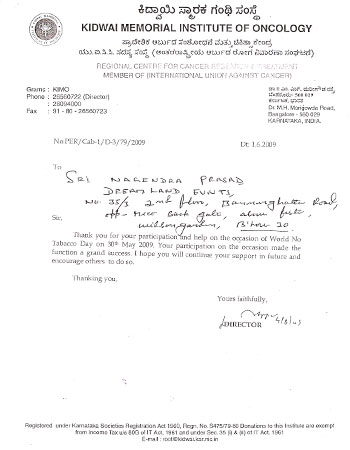 ಕಿದ್ವಾಯಿ ಸ್ಮಾರಕ ಗಂಥಿ ಸಂಸ್ಥೆ
KIDWAI MEMORIAL INSTITUTE OF ONCOLOGY
REGIONAL CENTRE FOR CANCER RESEARCH & TREATMENT
MEMBER OF (INTERNATIONAL UNION AGAINST CANCER)
Grams : KIMO
Phone : 26560722 (Director)
: 26094000
Fax : 91 - 80 - 26560723
Dr. M.H. Marigowda Road,
Bangalore - 560 029
KARNATAKA, INDIA.
No.PER/Cab-1/D-3/79/2009
Dt: 1.6.2009
To
SRI NAGENDRA PRASAD
DREAM LAND EVNTS
No. 35/1 2nd floor, Bannerghatta Road,
opp. back gate,
B'lore 30
Sir,
Thank you for your participation and help on the occasion of World No
Tobacco Day on 30th May 2009. Your participation on the occasion made the
function a grand success. I hope you will continue your support in future and
encourage others to do so.
Thanking you.
Yours faithfully,
DIRECTOR
Registered under Karnataka Societies Registration Act 1960, Regn. No. S475/79-80 Donations to this Institute are exempt
from Income Tax u/s 80G of IT Act, 1961 and under Sec. 35 (i) & (ii) of IT Act, 1961
E-mail : root@kidwai.kar.nic.in